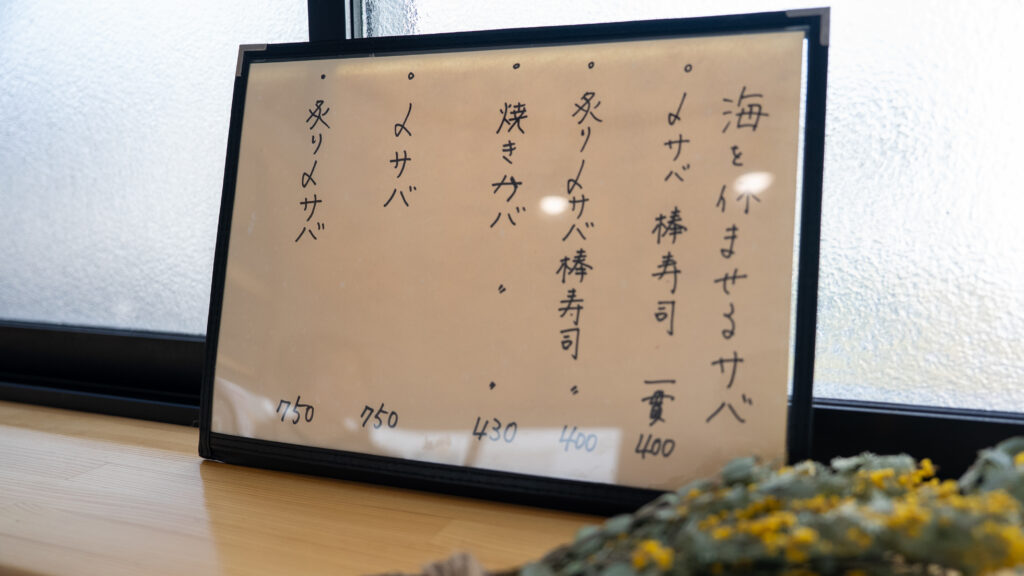 海を休ませるサバ
。〆サバ 棒寿司 一貫 400
。炙り〆サバ棒寿司 〃 400
。焼きサバ 〃 〃 430
。〆サバ 750
。炙り〆サバ 750